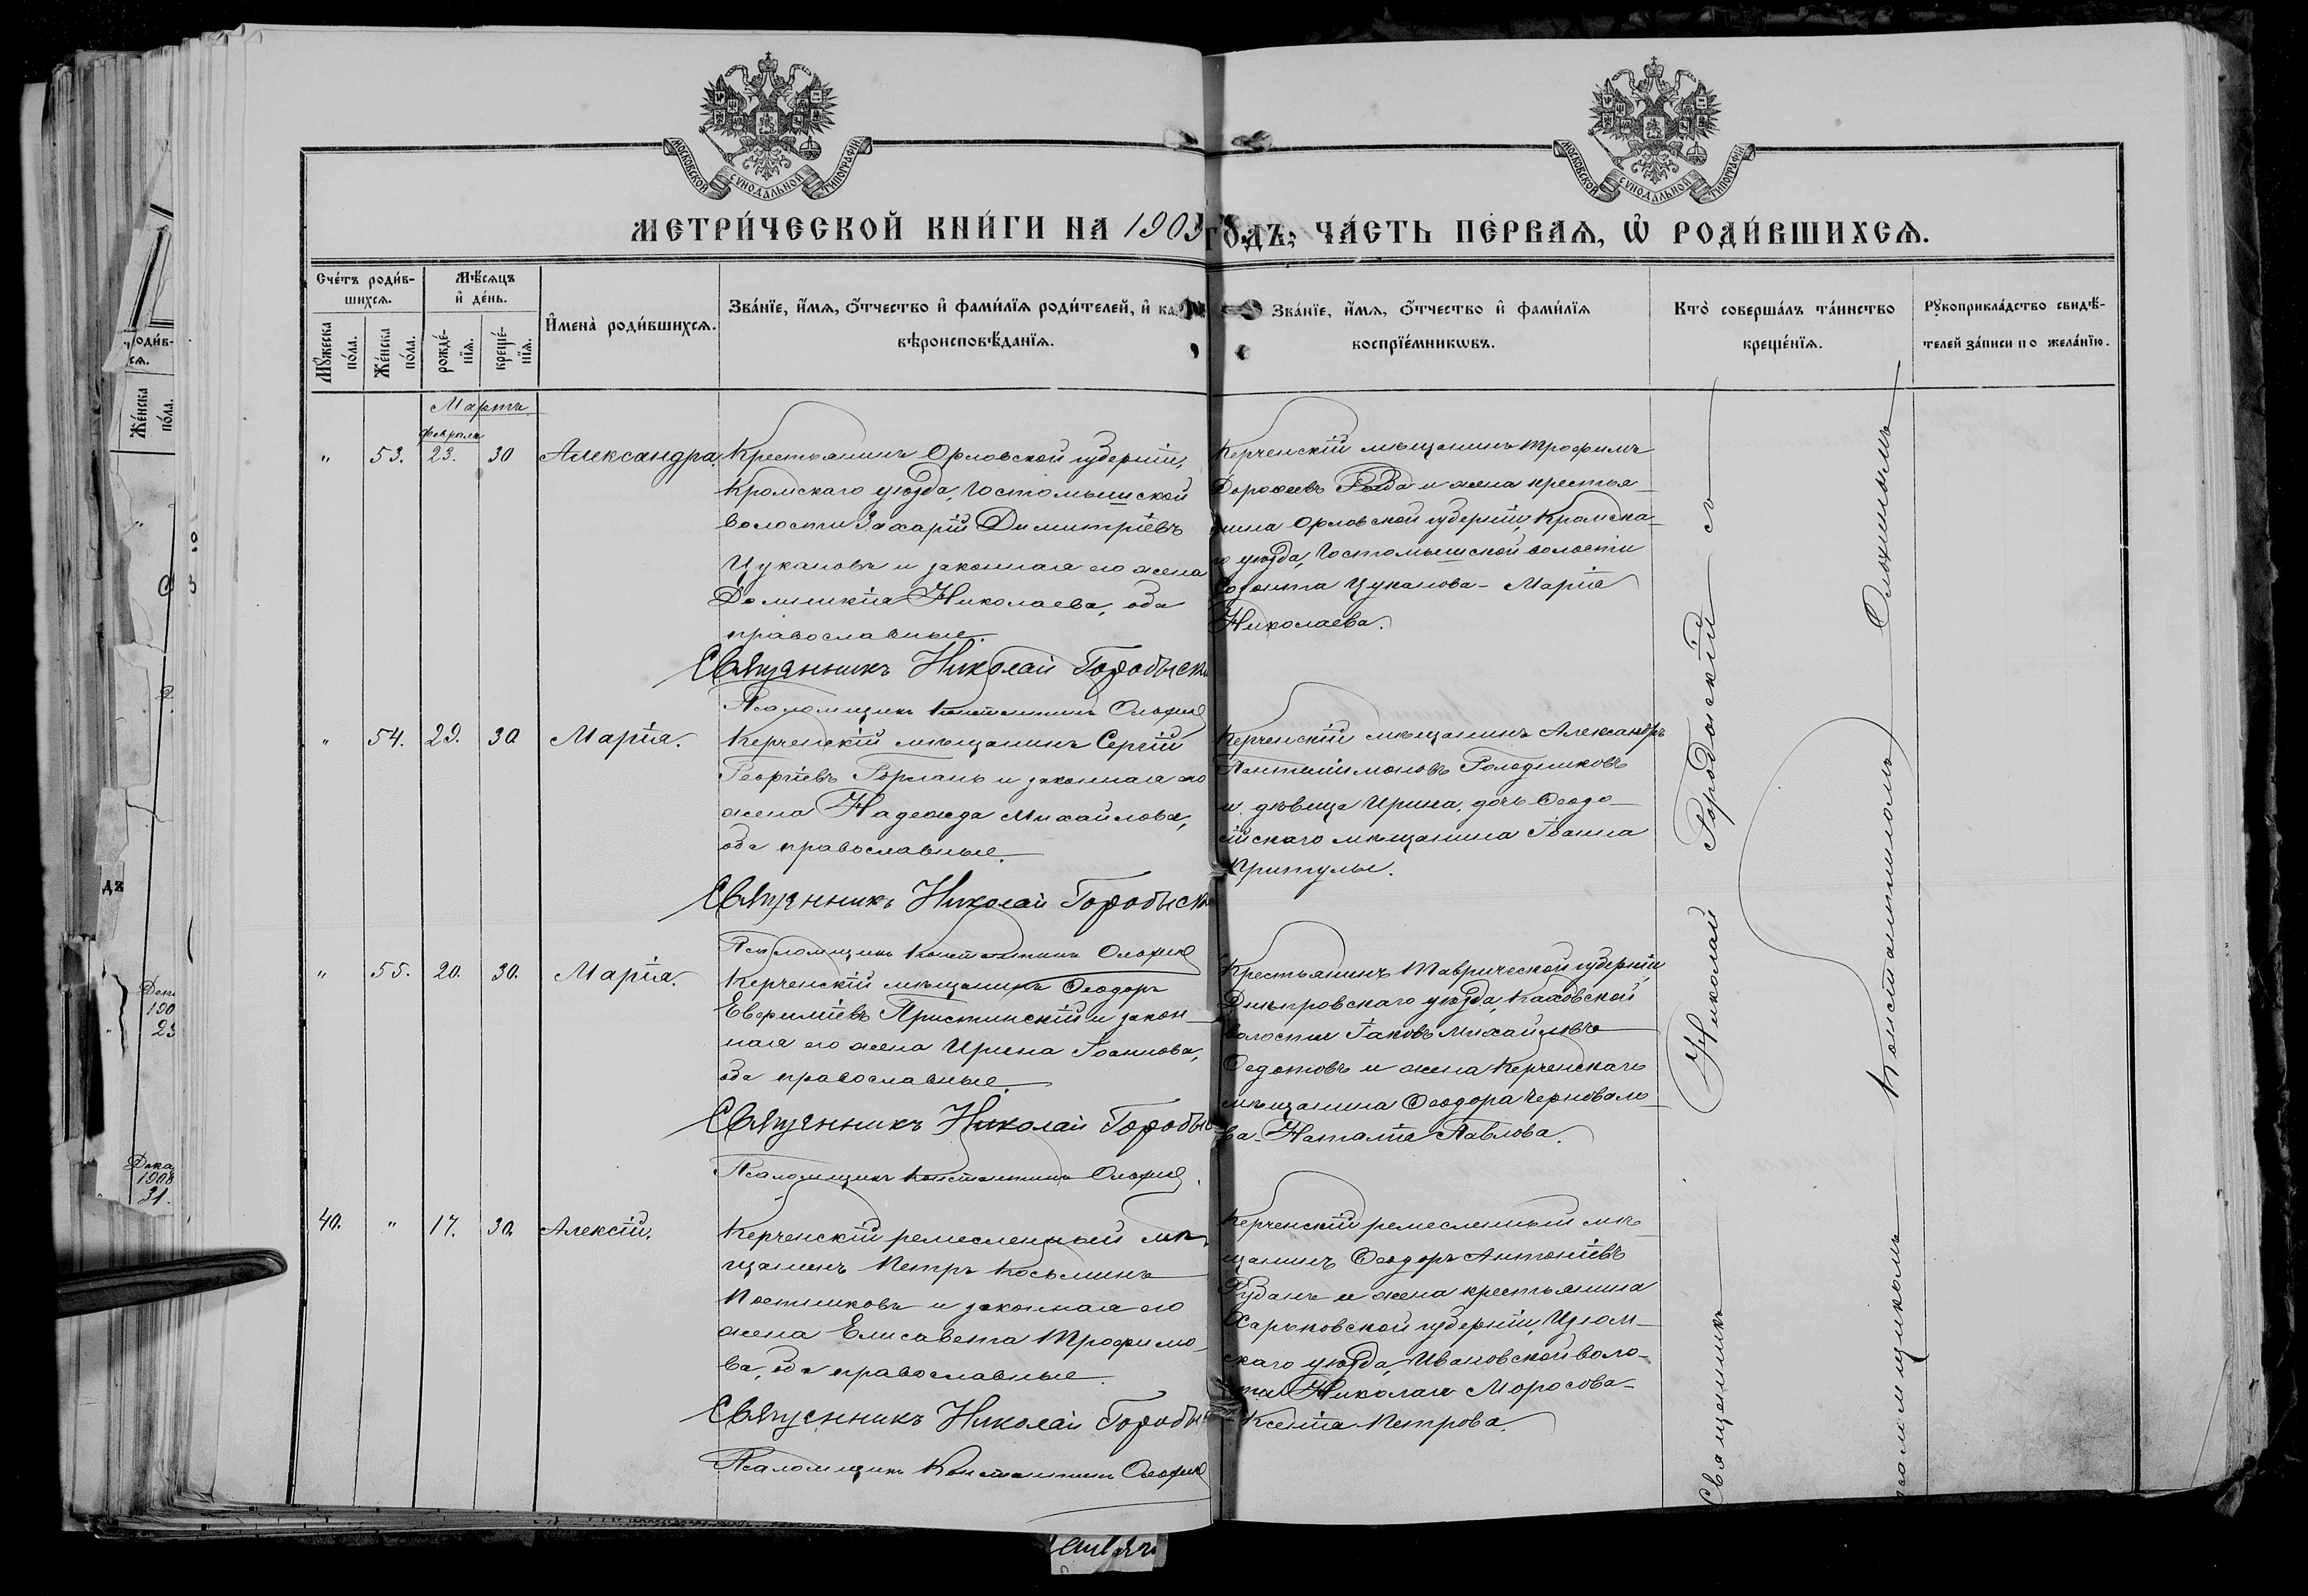 МОСКОВСКОЙ СУНОДАЛЬНОЙ ТИПОГРАФІИ
МОСКОВСКОЙ СУНОДАЛЬНОЙ ТИПОГРАФІИ
МЕТРИ́ЧЕСКОЙ КНИ́ГИ НА 1909 ГОДЪ, ЧА́СТЬ ПЕ́РВАЯ, Ѡ РОДИ́ВШИХСЯ.
Сче́тъ роди́в-
шихсѧ.
Мꙋ́жеска
по́ла.
Же́нска
по́ла.
Мѣ́сѧцъ
и҆ де́нь.
рожде́-
нїѧ.
креще́-
нїѧ.
И҆мена̀ роди́вшихсѧ.
Зва́нїе, и҆́мѧ, ѻ҆́тчество и҆ фами́лїѧ роди́телей, и҆ ка
вѣроисповѣ́данїѧ.
Зва́нїе, и҆́мѧ, ѻ҆́тчество и҆ фами́лїѧ
воспрїе́мникѡвъ.
Кто̀ соверша́лъ та́инство
креще́нїѧ.
Рꙋкоприкла́дство свидѣ́-
телей за́писи по жела́нїю.
Мартъ.
февраль
" 53. 23. 30 Александра.
Крестьянинъ Орловской губерніи,
Кромскаго уѣзда, Гостомышской
волости Захарій Димитріевъ
Цукановъ и законная его жена
Домникія Николаева, оба
православные.
Священникъ Николай Городыск
Псаломщикъ Константинъ
Керченскій мѣщанинъ Трофимъ
Дорофеевъ и жена крестья-
нина Орловской губерніи, Кромска-
го уѣзда, Гостомышской волости
Цуканова - Марія
Николаева.
" 54. 29. 30 Марія.
Керченскій мѣщанинъ Сергій
Георгіевъ Горланъ и законная его
жена Надежда Михайлова,
оба православные.
Священникъ Николай Городыск
Псаломщикъ Константинъ
Керченскій мѣщанинъ Александръ
Пантелимоновъ Голодниковъ
и дѣвица Ирина, дочь Ѳеодо-
сійскаго мѣщанина Іоанна
Притулы.
" 55. 20. 30. Марія.
Керченскій мѣщанинъ Ѳеодоръ
Евфиміевъ Пристинскій и закон-
ная его жена Ирина Іоаннова,
оба православные.
Священникъ Николай Городы
Псаломщикъ Константинъ
Крестьянинъ Таврической губерніи
Днѣпровскаго уѣзда, Каховской
волости Іаковъ Михайловъ
Ѳедотовъ и жена Керченскаго
мѣщанина Ѳеодора Черновало-
ва - Наталія Павлова.
40. " 17. 30. Алексій.
Керченскій ремесленный мѣ-
щанинъ Петръ Косьминъ
Постниковъ и законная его
жена Елисавета Трофимо-
ва, оба православные.
Священникъ Николай Городы
Псаломщикъ Константинъ
Керченскій ремесленный мѣ-
щанинъ Ѳеодоръ Антоніевъ
Рубанъ и жена крестьянина
Харьковской губерніи, Изюм-
скаго уѣзда, Ивановской воло-
сти Николая Моросова -
Ксенія Петрова.
Священникъ Николай Городыскій съ
псаломщикомъ Константиномъ